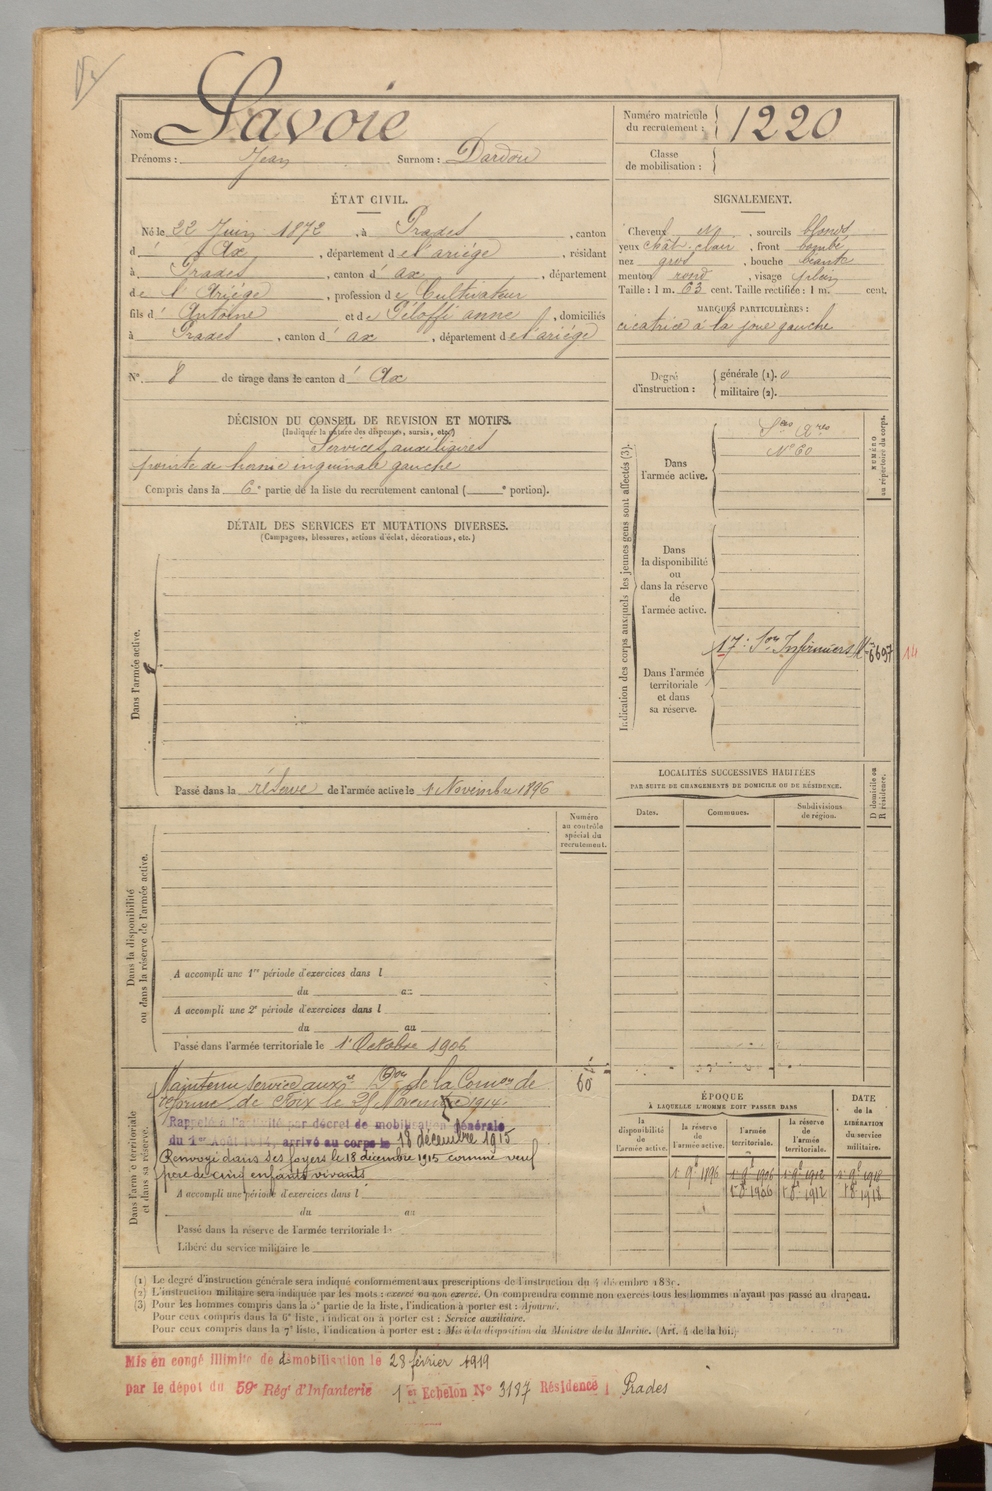 Nom Savoie
Prénoms : Jean Surnom : Dardou
Numéro matricule du recrutement : 1220
Classe de mobilisation :
ÉTAT CIVIL.
Né le 22 Juin 1872, à Prades, canton
d' Ax, département de l'ariége, résidant
à Prades, canton d' ax, département
de l'Ariége, profession de Cultivateur
fils d' Antoine et de Péloffi anne, domiciliés
à Prades, canton d' ax, département de l'ariége
N° 8 de tirage dans le canton d' Ax
SIGNALEMENT.
Cheveux , sourcils blonds
yeux chât. clair, front bombé
nez gros, bouche béante
menton rond, visage plein
Taille : 1 m. 63 cent. Taille rectifiée : 1 m. cent.
MARQUES PARTICULIÈRES :
cicatrice à la joue gauche
Degré d'instruction : générale (1). 0
militaire (2).
DÉCISION DU CONSEIL DE REVISION ET MOTIFS.
(Indiquer la nature des dispenses, sursis, etc.)
Services auxiliaires
pointe de hernie inguinale gauche
Compris dans la 6e partie de la liste du recrutement cantonal ( e portion).
DÉTAIL DES SERVICES ET MUTATIONS DIVERSES.
(Campagnes, blessures, actions d'éclat, décorations, etc.)
Dans l'armée active.
Passé dans la réserve de l'armée active le 1 Novembre 1896
Indication des corps auxquels les jeunes gens sont affectés (3).
NUMÉRO au répertoire du corps.
Dans l'armée active.
N° 60
Dans la disponibilité ou dans la réserve de l'armée active.
Dans l'armée territoriale et dans sa réserve.
17e Son Infirmiers 6697 14
LOCALITÉS SUCCESSIVES HABITÉES
PAR SUITE DE CHANGEMENTS DE DOMICILE OU DE RÉSIDENCE.
Dates. Communes. Subdivisions de région. D domicile ou R résidence.
Numéro au contrôle spécial du recrutement.
Dans la disponibilité ou dans la réserve de l'armée active.
A accompli une 1re période d'exercices dans l
du au
A accompli une 2e période d'exercices dans l
du au
Passé dans l'armée territoriale le 1 Octobre 1906
Dans l'armée territoriale et dans sa réserve.
Maintenu service auxre Don de la Comon de
réforme de Foix le 28 Novembre 1914.
60
Rappelé à l'activité par décret de mobilisation générale
du 1er Août 1914, arrivé au corps le 13 décembre 1915
Renvoyé dans ses foyers le 18 décembre 1915 comme veuf
père de cinq enfants vivants
A accompli une période d'exercices dans l
du au
Passé dans la réserve de l'armée territoriale le
Libéré du service militaire le
ÉPOQUE
À LAQUELLE L'HOMME DOIT PASSER DANS
DATE de la LIBÉRATION du service militaire.
la disponibilité de l'armée active. la réserve de l'armée active. l'armée territoriale. la réserve de l'armée territoriale.
1 9e 1896 1 9e 1906 1 9e 1912 1 9e 1918
1 8e 1906 1 8e 1912 1 8e 1918
(1) Le degré d'instruction générale sera indiqué conformément aux prescriptions de l'instruction du 4 décembre 1889.
(2) L'instruction militaire sera indiquée par les mots : exercé ou non exercé. On comprendra comme non exercés tous les hommes n'ayant pas passé au drapeau.
(3) Pour les hommes compris dans la 5e partie de la liste, l'indication à porter est : Ajourné.
Pour ceux compris dans la 6e liste, l'indication à porter est : Service auxiliaire.
Pour ceux compris dans la 7e liste, l'indication à porter est : Mis à la disposition du Ministre de la Marine. (Art. 4 de la loi.)
Mis en congé illimité de démobilisation le 28 février 1919
par le dépot du 59e Régt d'Infanterie 1er Echelon N° 3187 Résidence Prades